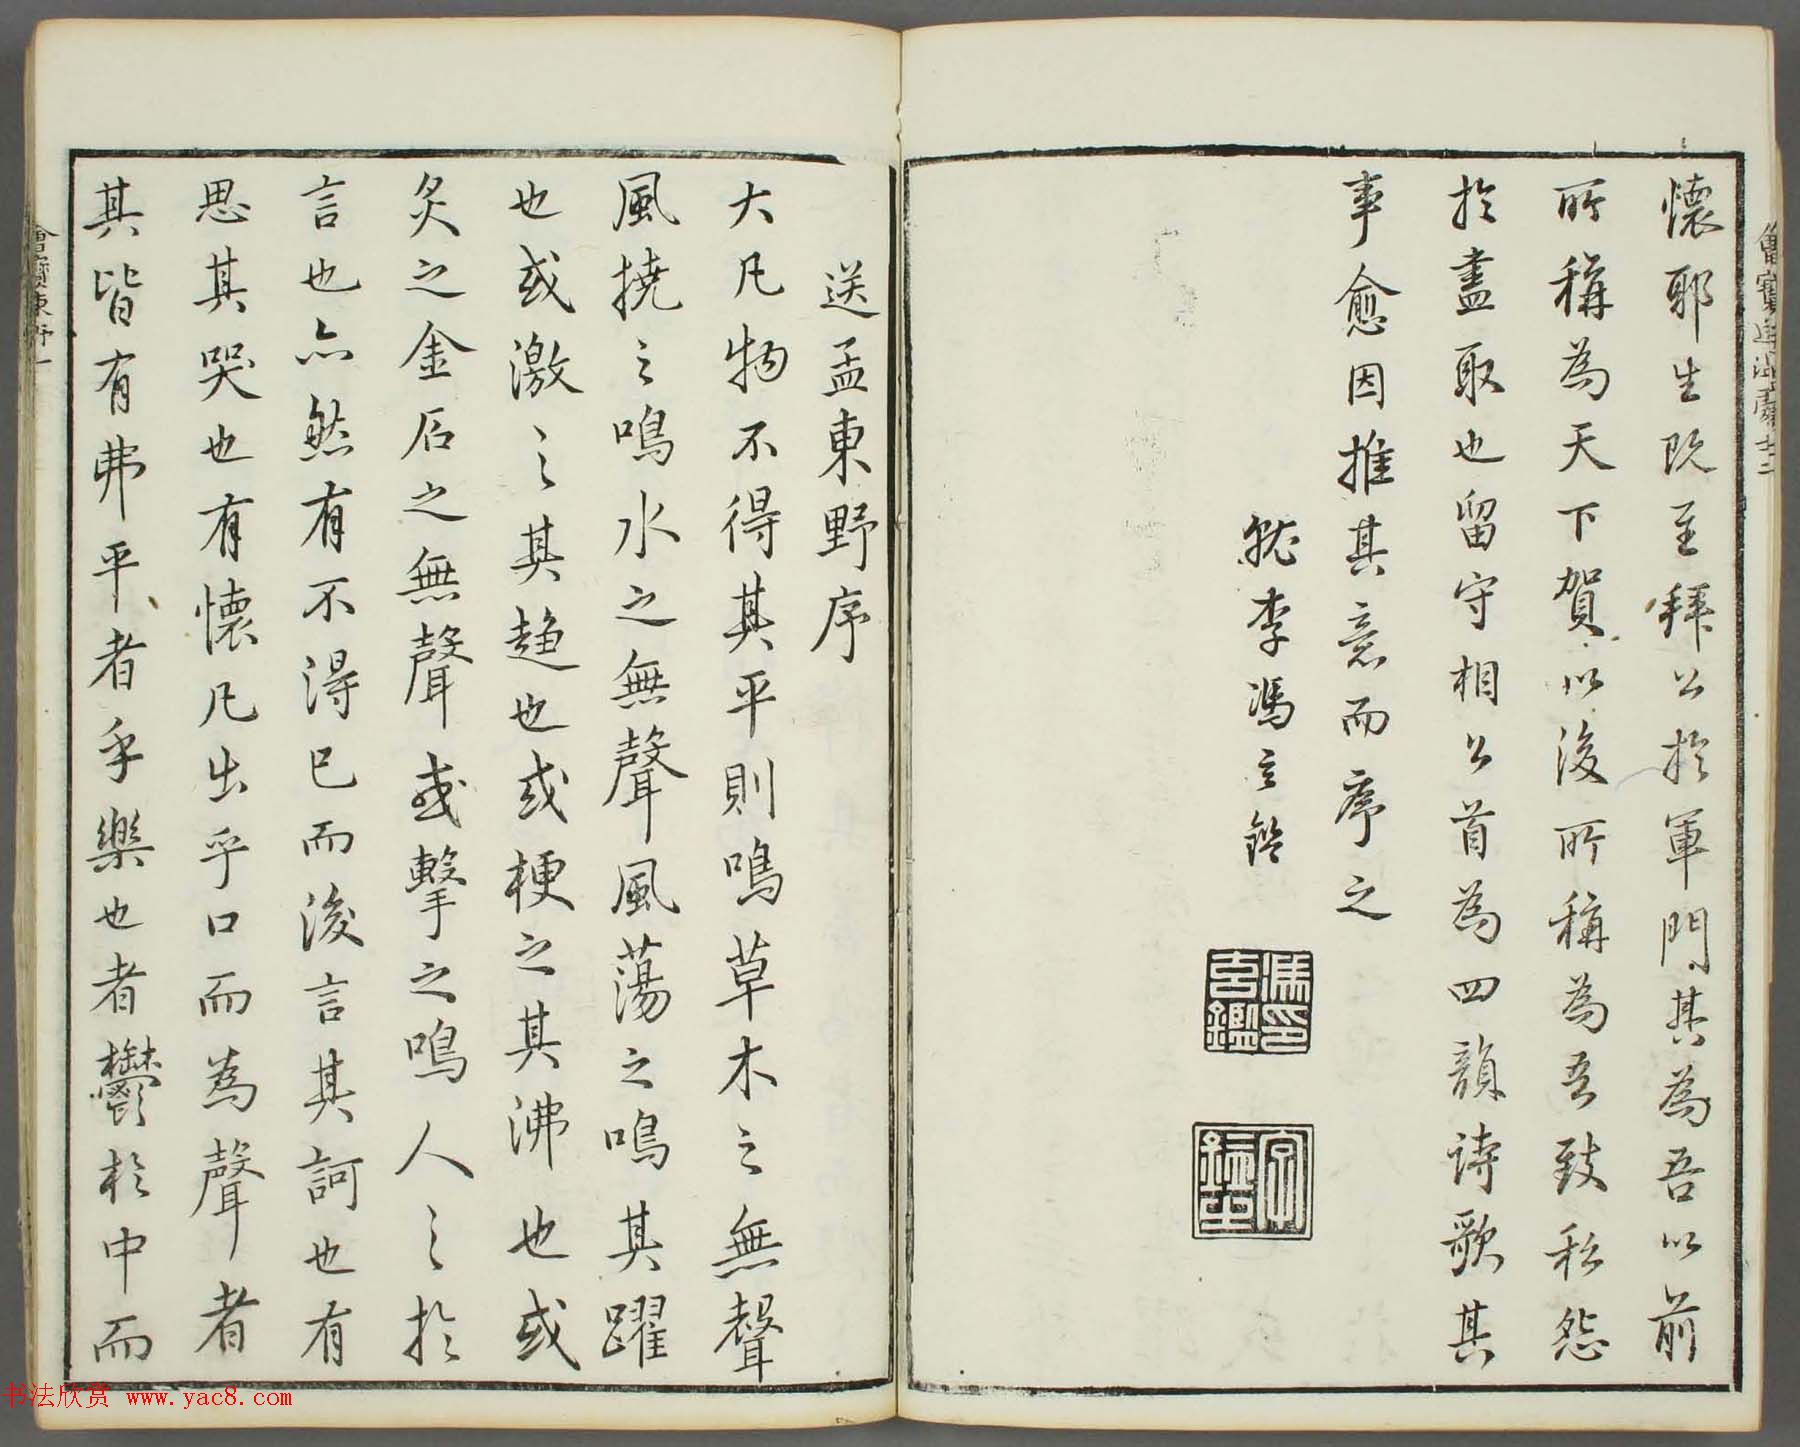 懷耶生既至拜公於軍門其為吾以前
所稱為天下賀以後所稱為吾致私怨
於盡取也留守相公首為四韻詩歌其
事愈因推其意而序之
就李馮玄鑑
馮印玄鑑
送孟東野序
大凡物不得其平則鳴草木之無聲
風撓之鳴水之無聲風蕩之鳴其躍
也或激之其趨也或梗之其沸也或
炙之金石之無聲或擊之鳴人之於
言也亦然有不得已而後言其謌也有
思其哭也有懷凡出乎口而為聲者
其皆有弗平者乎樂也者鬱於中而
书法欣赏 www.yac8.com